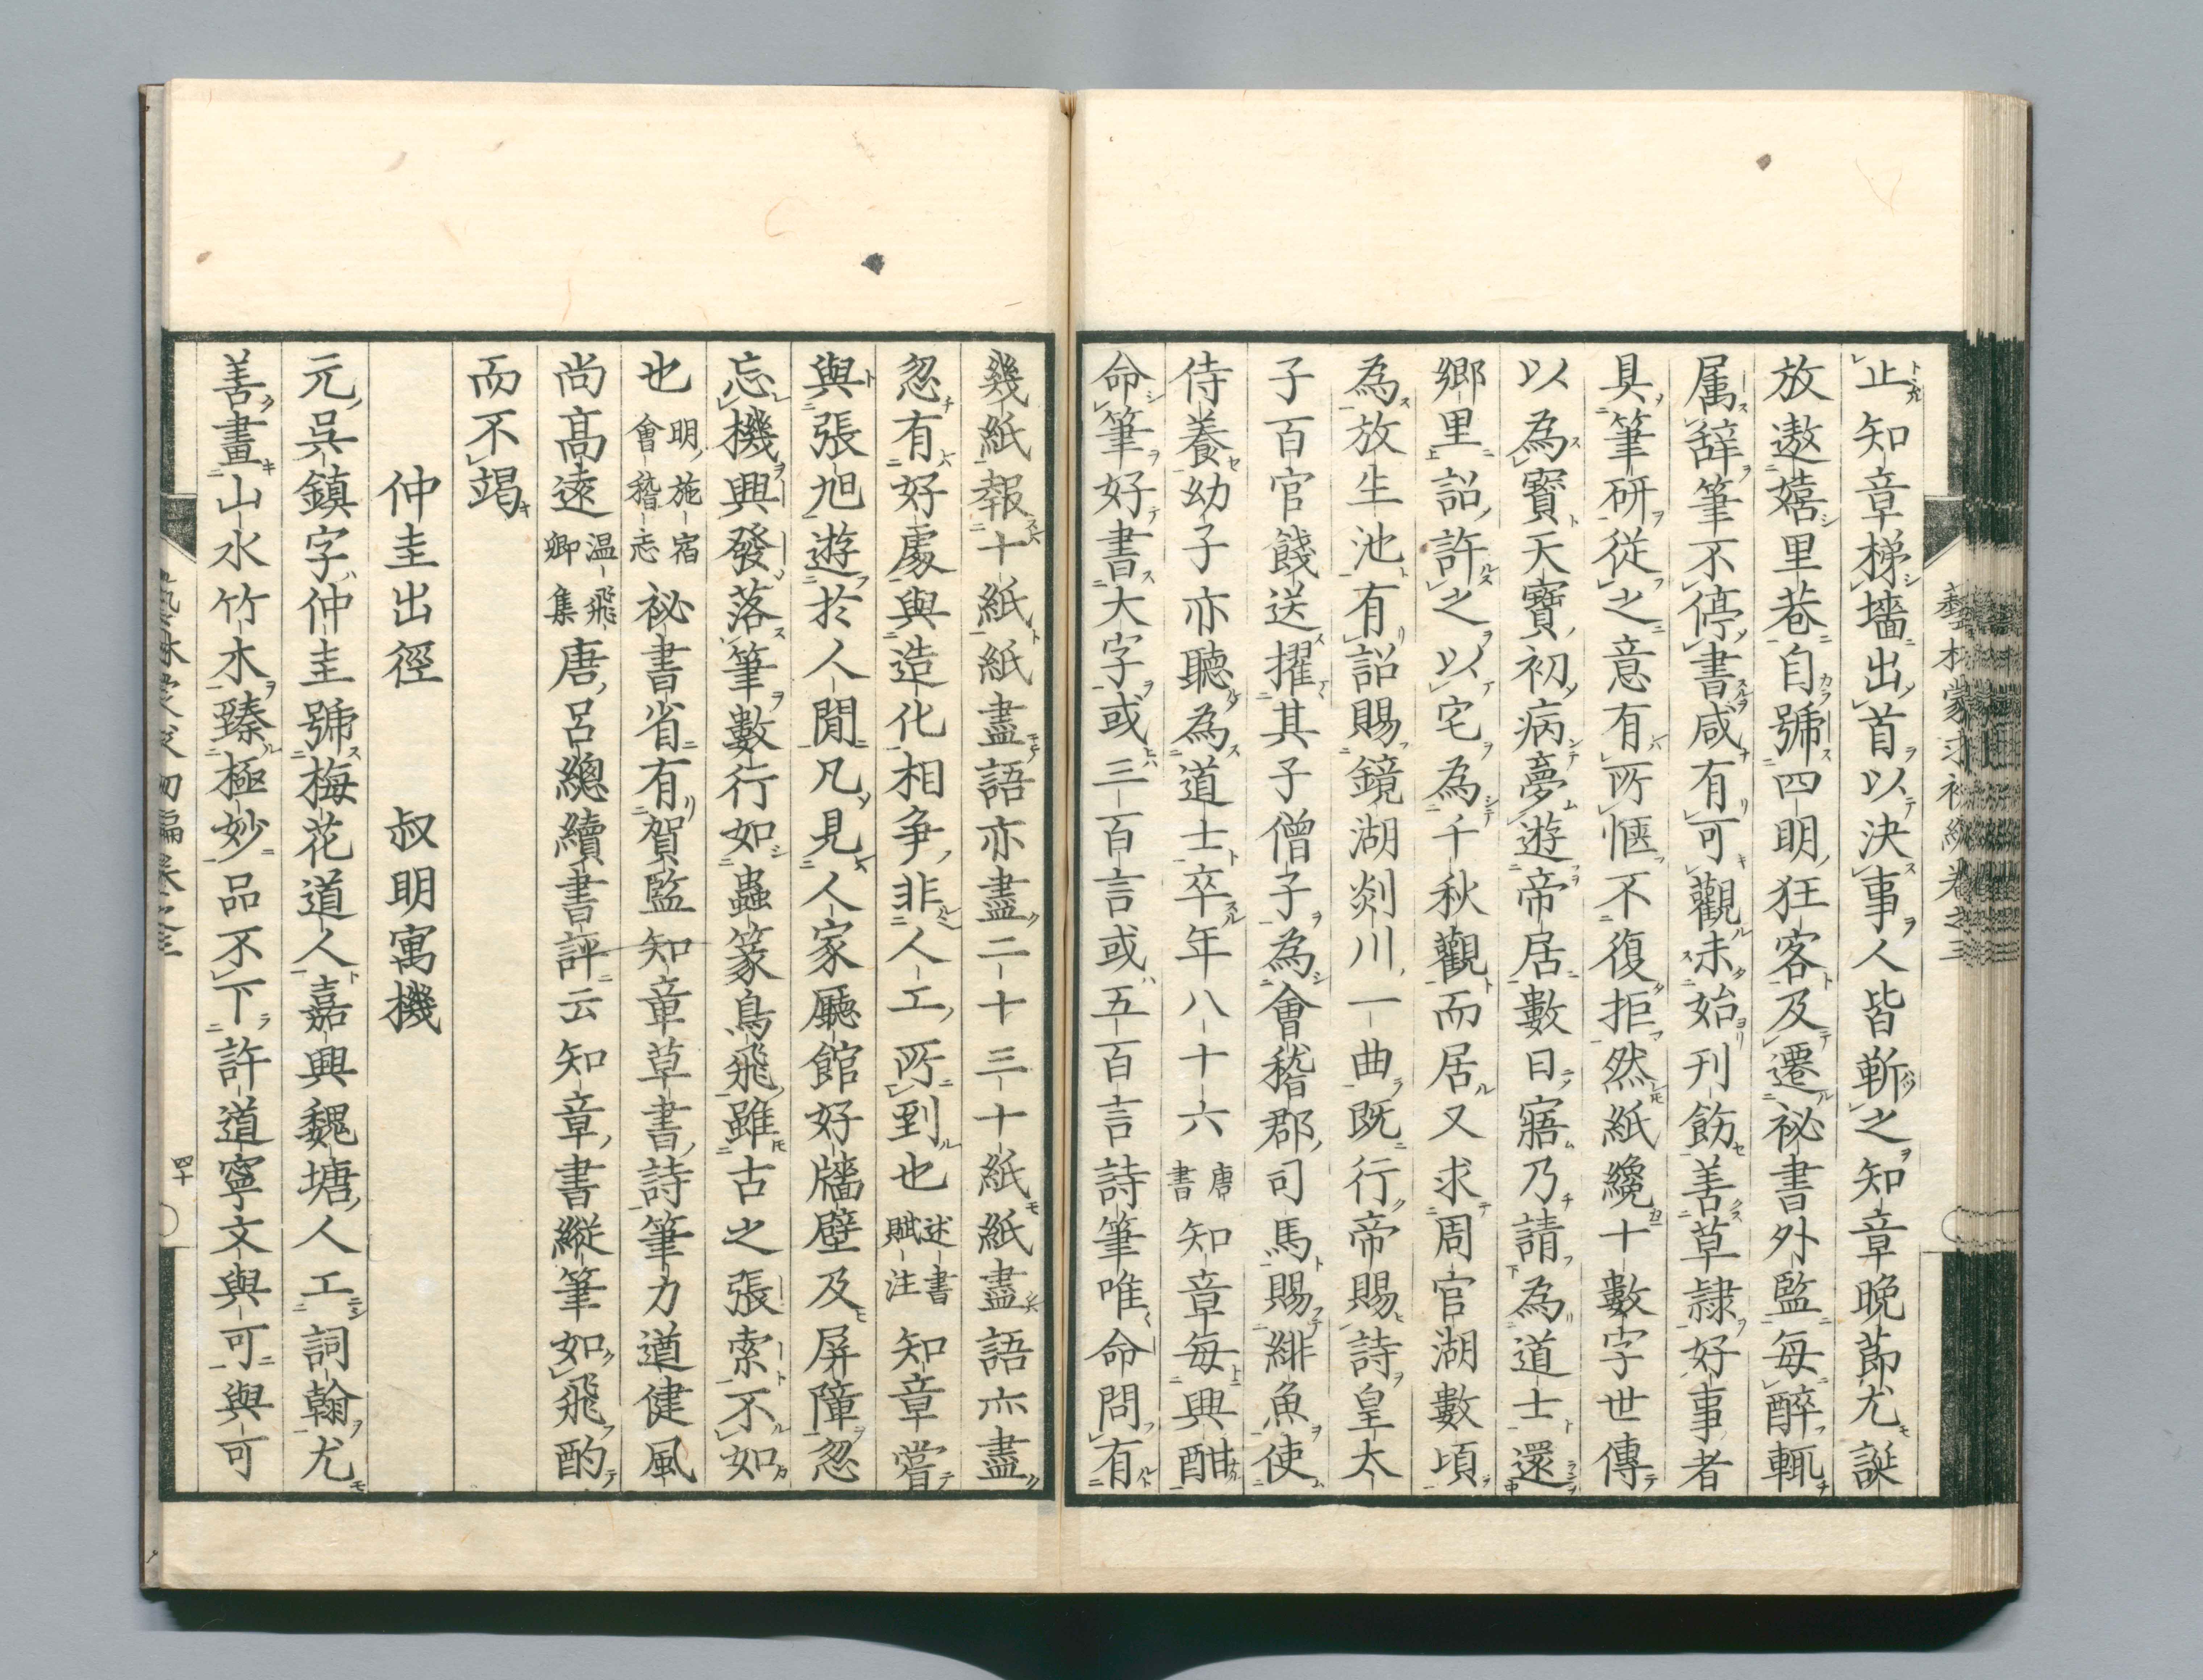 止知章梯墻出首以決事人皆斬之知章晩莭尤誕
放遨嬉里巷自號四明狂客及遷祕書外監每醉輒
属辭筆不停書咸有可觀未始刊飭善草隷好事者
具筆研從之意有所愜不復拒然紙纔十數字世傳
以為寳天寳初病夢遊帝居數日寤乃請為道士還
鄉里詔許之以宅為千秋觀而居又求周官湖數頃
為放生池有詔賜鏡湖剡川一曲既行帝賜詩皇太
子百官餞送擢其子僧子為會稽郡司馬賜緋魚使
侍養幼子亦聽為道士卒年八十六唐書知章每興酣
命筆好書大字或三百言或五百言詩筆唯命問有
幾紙報十紙紙盡語亦盡二十三十紙紙盡語亦盡
忽有好處與造化相争非人工所到也述書賦注知章嘗
與張旭遊於人間凡見人家廳館好牆壁及屏障忽
忘機興發落筆數行如蟲篆鳥飛雖古之張索不如
也明施宿會稽志祕書省有賀監知章草書詩筆力遒健風
尚高遠温飛卿集唐呂總續書評云知章書縱筆如飛酌
而不竭
仲圭出徑　叔明寓機
元吳鎮字仲圭號梅花道人嘉興魏塘人工詞翰尤
善畫山水竹木臻極妙品不下許道寧文與可與可
四十